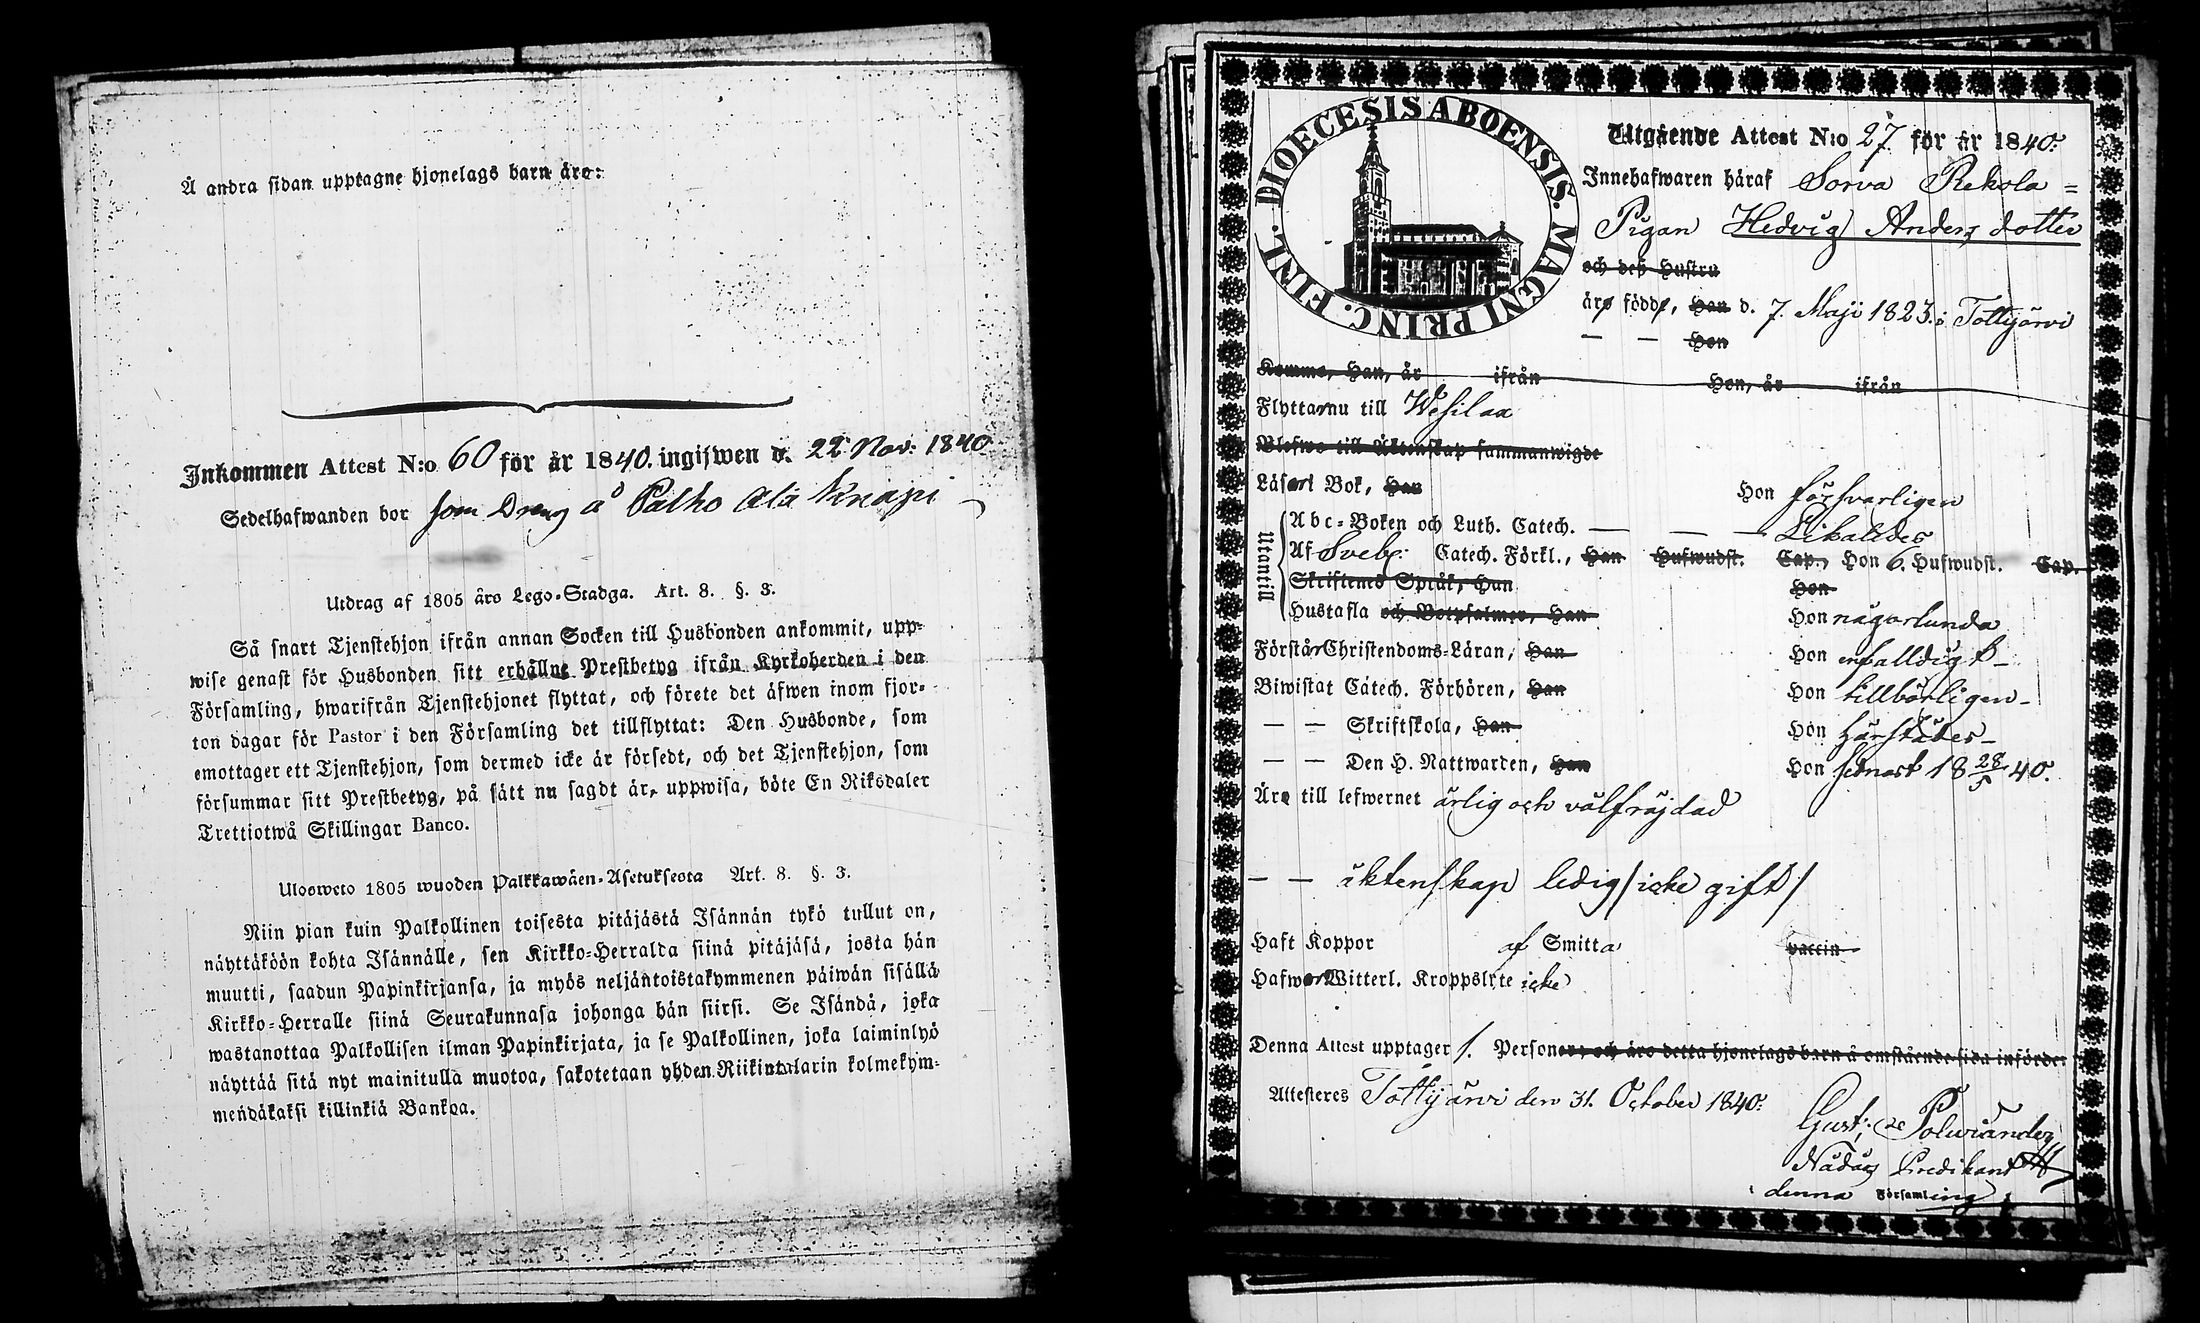 Å andra sidan upptagne hjonelags barn äro:
Inkommen Attest N:o 60 för år 1840. ingifwen d. 22 Nov: 1840
Sedelhafwanden bor som Dreng å Palho Ala Knapi
Utdrag af 1805 års Lego-Stadga. Art. 8. §. 3.
Så snart Tjenstehjon ifrån annan Socken till Husbonden ankommit, upp-
wise genast för Husbonden sitt erhållne Prestbetyg ifrån Kyrkoherden i den
Församling, hwarifrån Tjenstehjonet flyttat, och förete det äfwen inom fjor-
ton dagar för Pastor i den Församling det tillflyttat: Den Husbonde, som
emottager ett Tjenstehjon, som dermed icke är försedt, och det Tjenstehjon, som
försummar sitt Prestbetyg, på sätt nu sagdt är, uppwisa, böte En Riksdaler
Trettiotwå Skillingar Banco.
Ulosweto 1805 wuoden Palkkawäen-Asetuksesta Art. 8. §. 3.
Niin pian kuin Palkollinen toisesta pitäjästä Isännän tykö tullut on,
näyttäköön kohta Isännälle, sen Kirkko-Herralda siinä pitäjäsä, josta hän
muutti, saadun Papinkirjansa, ja myös neljäntoistakymmenen päiwän sisällä
Kirkko-Herralle siinä Seurakunnasa johonga hän siirsi. Se Isändä, joka
wastanottaa Palkollisen ilman Papinkirjata, ja se Palkollinen, joka laiminlyö
näyttää sitä nyt mainitulla muotoa, sakotetaan yhden Riikintalarin kolmekym-
mendäkaksi killinkiä Bankoa.
DIOECESIS ABOENSIS. MAGNI PRINC. FINL.
Utgående Attest N:o 27 för år 1840.
Innehafwaren häraf Sorva Rekola =
Pigan Hedvig Anders dotter
och deß Hustru
äro födde, Han d. 7. Maji 1823. i Tottijärvi
— — Hon
Komne, Han, år ifrån Hon, år ifrån
Flytta nu till Wesilax
Blefwo till Äktenskap sammanwigde
Läser i Bok, Han Hon försvarligen
Utantill
Abc-Boken och Luth. Catech. — — — Likaledes
Af Sveb: Catech. Förkl., Han Hufwudst. Cap., Hon 6. Hufwudst. Cap.
Skriftenes Språk, Han Hon
Hustafla och Botpsalmen, Han Hon någorlunda
Förstår Christendoms-Läran, Han Hon enfalldigt
Biwistat Catech. Förhören, Han Hon tillbörligen
— — Skriftskola, Han Hon härstädes
— — Den H. Nattwarden, Han Hon sednast 18 28/5 40.
Äro till lefwernet ärlig och välfräjdad
— — äktenskap ledig /icke gift/
Haft Koppor af Smitta vaccin
Hafwer Witterl. Kroppslyte icke
Denna Attest upptager 1. Personer, och äro detta hjonelags barn å omstående sida införde.
Attesteres Tottijärvi den 31. October 1840.
Gust: Polwiander
Nådårs Predikant
i denna Församling